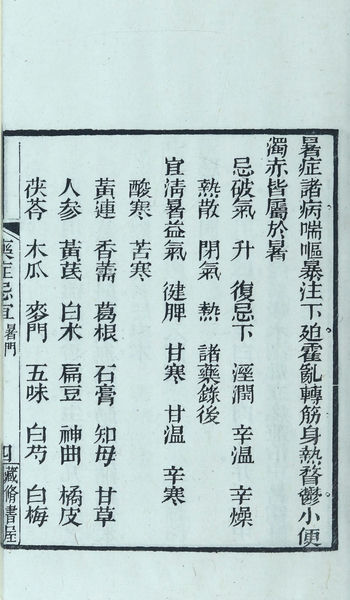 暑症諸病喘嘔暴注下廹霍亂轉筋身熱瞀鬱小便
濁赤皆屬於暑
忌破氣 升 復忌下 溼潤 辛温 辛燥
熱散 閉氣 熱 諸藥錄後
宜淸暑益氣 健脾 甘寒 甘温 辛寒
酸寒 苦寒
黃連 香薷 葛根 石膏 知母 甘草
人參 黃茋 白朮 扁豆 神曲 橘皮
茯苓 木瓜 麥門 五味 白芍 白梅
藥症忌宜 暑門 四 藏脩書屋